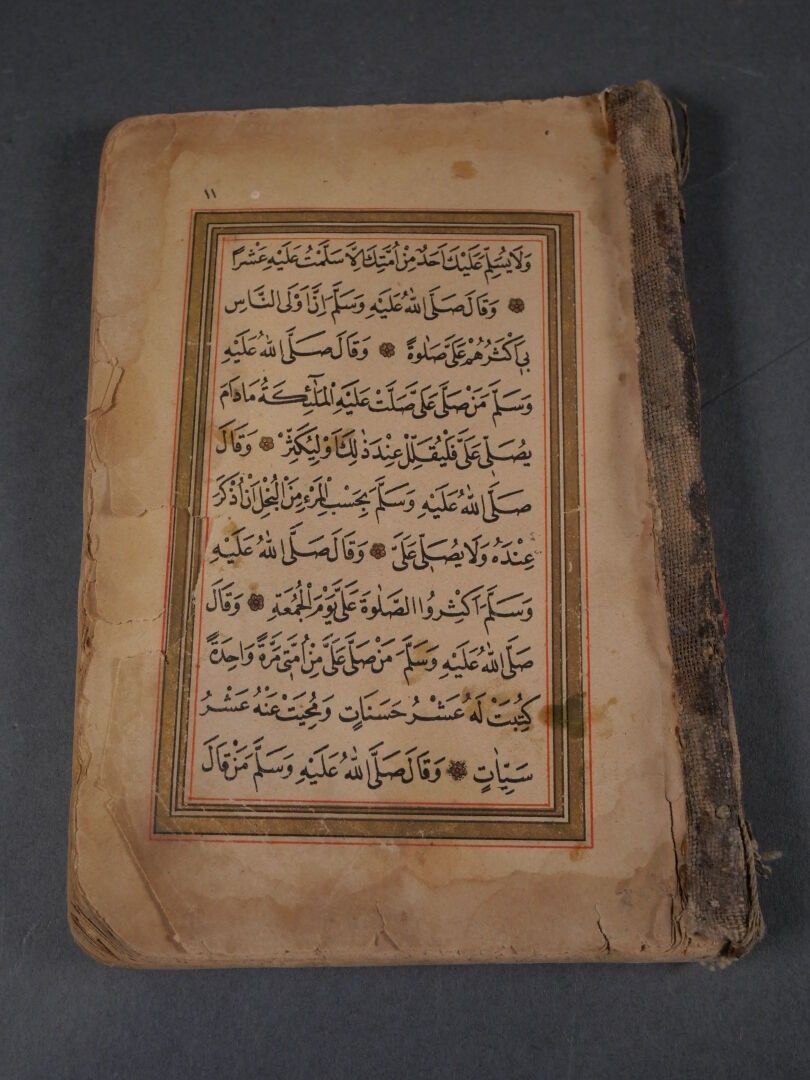 ١١
وَلَا يُسَلِّمُ عَلَيْكَ اَحَدٌ مِنْ اُمَّتِكَ اِلَّا سَلَّمْتُ عَلَيْهِ عَشْرًا
وَقَالَ صَلَّى اللهُ عَلَيْهِ وَسَلَّمَ اِنَّ اَوْلَى النَّاسِ
بِي اَكْثَرُهُمْ عَلَيَّ صَلٰوةً وَقَالَ صَلَّى اللهُ عَلَيْهِ
وَسَلَّمَ مَنْ صَلَّى عَلَيَّ صَلَّتْ عَلَيْهِ الْمَلٰٓئِكَةُ مَادَامَ
يُصَلِّي عَلَيَّ فَلْيُقَلِّلْ عِنْدَ ذٰلِكَ اَوْ لِيُكَثِّرْ وَقَالَ
صَلَّى اللهُ عَلَيْهِ وَسَلَّمَ بِحَسْبِ الْمَرْءِ مِنَ الْبُخْلِ اَنْ اُذْكَرَ
عِنْدَهُ وَلَا يُصَلِّي عَلَيَّ وَقَالَ صَلَّى اللهُ عَلَيْهِ
وَسَلَّمَ اَكْثِرُوا الصَّلٰوةَ عَلَيَّ يَوْمَ الْجُمُعَةِ وَقَالَ
صَلَّى اللهُ عَلَيْهِ وَسَلَّمَ مَنْ صَلَّى عَلَيَّ مِنْ اُمَّتِي مَرَّةً وَاحِدَةً
كُتِبَتْ لَهُ عَشْرُ حَسَنَاتٍ وَمُحِيَتْ عَنْهُ عَشْرُ
سَيِّاٰتٍ وَقَالَ صَلَّى اللهُ عَلَيْهِ وَسَلَّمَ مَنْ قَالَ